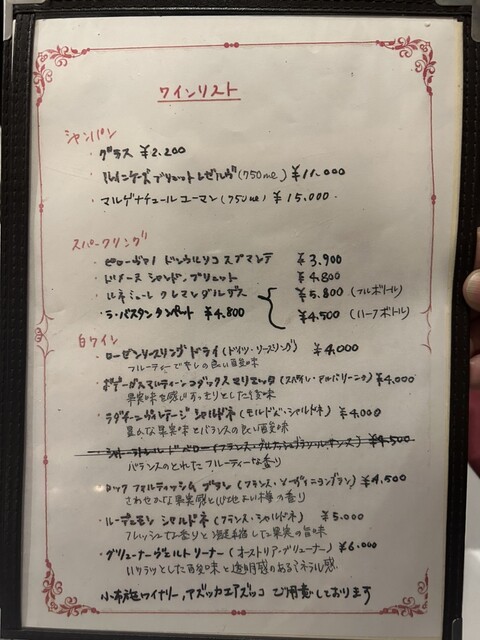 ワインリスト
シャンパン
・グラス ¥2.200
・ルインケーズ ブリュット レゼルヴ(750ml) ¥11.000
・マルゲナチュール ユーマン(750ml) ¥15.000
スパークリング
・ピローヴァノ ドンウルリコ スプマンテ ¥3.900
・ドメーヌ シャンドン ブリュット ¥4.800
・ルネミューレ クレマンダルザス ¥5.800(フルボトル)
・ラ・バスタンタンペット ¥4.800 ¥4.500(ハーフボトル)
白ワイン
・ローゼンリースリング ドライ(ドイツ・リースリング) ¥4.000
フルーティーで
・ボデーガスマルティーンコダックス マリエッタ(スペイン・アルバリーニョ) ¥4.000
果実味を感じ すっきりとした
・ラグーンヴィンテージ シャルドネ(モルドバ・シャルドネ) ¥4.000
豊んな果実味とバランスの良い酸味
¥4.500
バランスのとれた フルーティーな香り
・ロック フォルティッシム ブラン(フランス・ソーヴィニヨンブラン) ¥4.500
さわやかな果実感と心地よい樽の香り
・ルーデュモン シャルドネ(フランス・シャルドネ) ¥5.000
フレッシュな香りと凝縮した果実の旨味
・グリューナーヴェルトリーナー(オーストリア・グリューナー) ¥6.000
いきいきとした酸味と透明感のあるミネラル感
小布施ワイナリー,アズッカエアズッコ ご用意しております